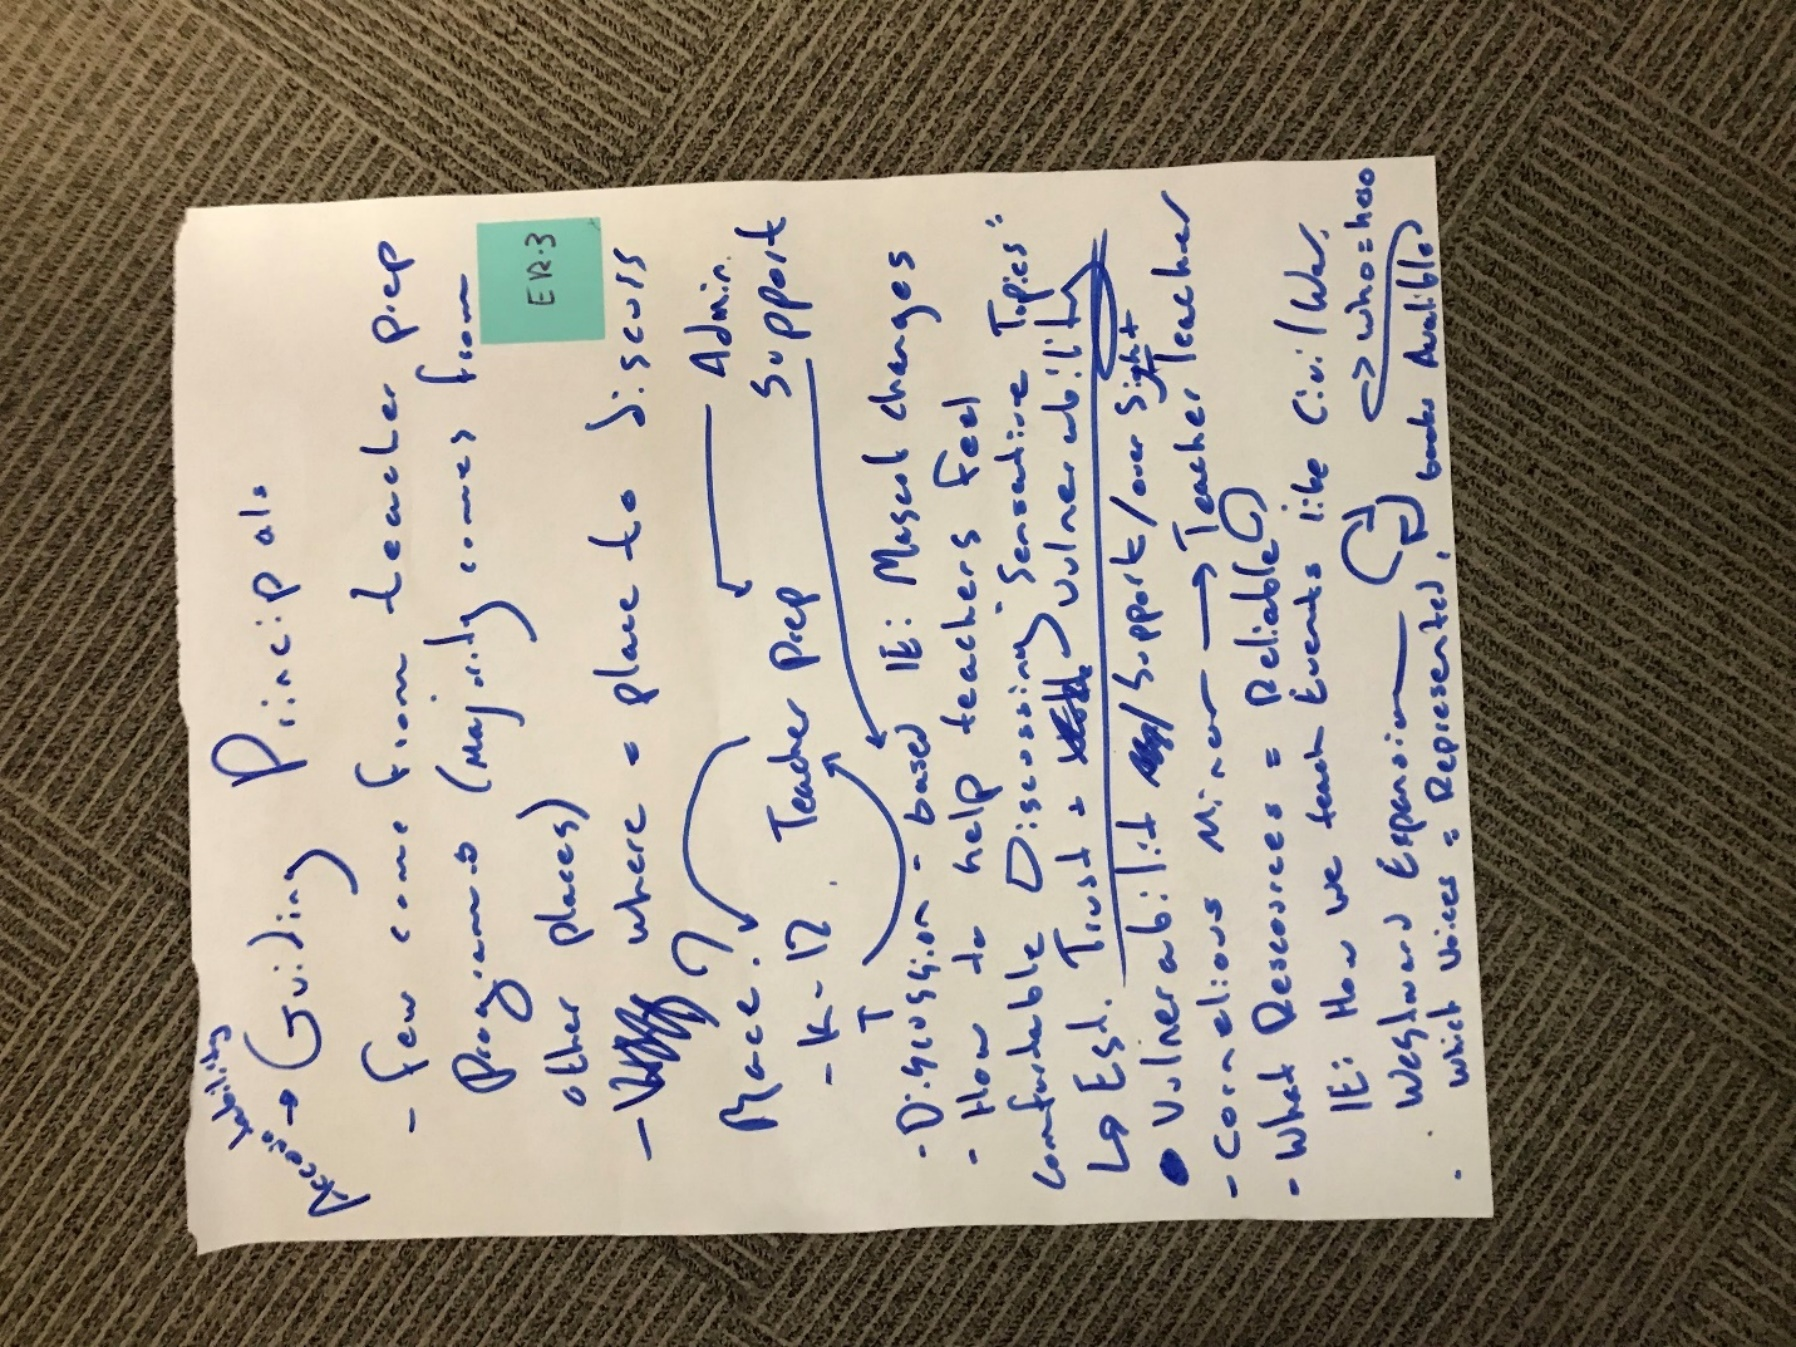 Accessability
→ Guiding Principals
- few come from teacher prep
Programs (Majority comes from
other places)
ER.3
- where = place to discuss
Race?
Admin.
Support
- K-12. Teacher prep
- Discussion-based IE: Mascot changes
- How to help teachers feel
comfortable Discussing "Sensative Topics"
↳ Est. Trust + Vulnerability
• Vulnerabilit / Support / over sight
- Cornelious Minor → Teacher Teacher
- What Rescources = Reliable
IE: How we teach Events like Civil War,
Westward Expansion
→ who = hero
. which voices = Represented, books Availible